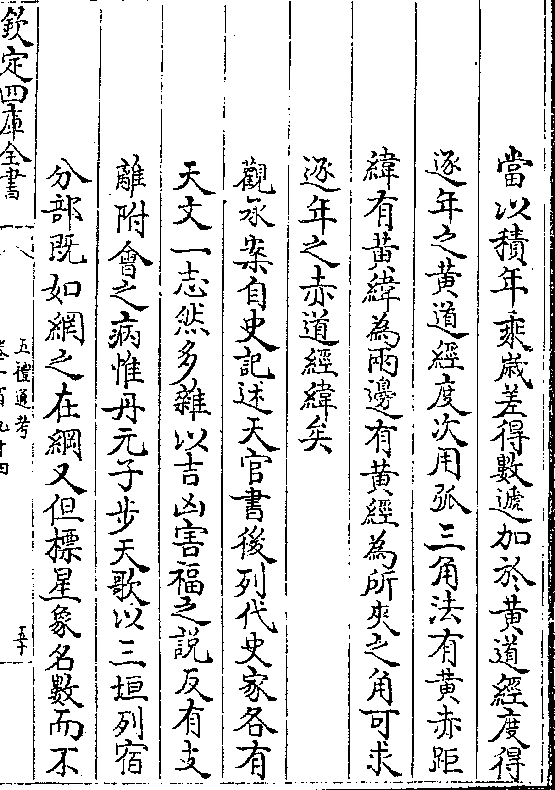 當以積年乘歲差得數遞加於黃道經度得
逐年之黃道經度次用弧三角法有黃赤距
緯有黃緯為兩邊有黃經為所夾之角可求
逐年之赤道經緯矣
觀承案自史記述天官書後列代史家各有
天文一志然多雜以吉凶害福之說反有支
離附會之病惟丹元子步天歌以三垣列宿
分部既如網之在綱又但標星象名數而不
欽定四庫全書
五禮通考
卷一百九十四
五十